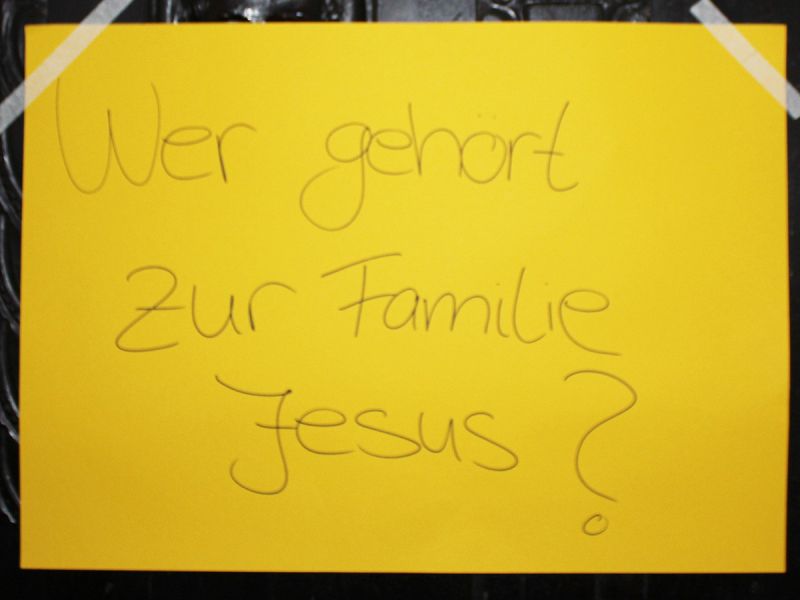 Wer gehört
zur Familie
Jesus?